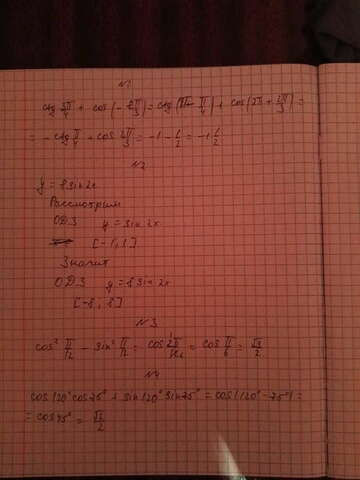 N1
ctg 3π/4 + cos(-2π/3) = ctg(π - π/4) + cos(2π + 2π/3) =
= -ctg π/4 + cos 2π/3 = -1 - 1/2 = -1 1/2
N2
y = 8 sin 2x
Рассмотрим
ОДЗ y = sin 2x
[-1, 1]
Значит
ОДЗ y = 8 sin 2x
[-8, 8]
N3
cos² π/12 - sin² π/12 = cos 2π/12 = cos π/6 = √3/2
N4
cos 120° cos 75° + sin 120° sin 75° = cos(120° - 75°) =
= cos 45° = √2/2